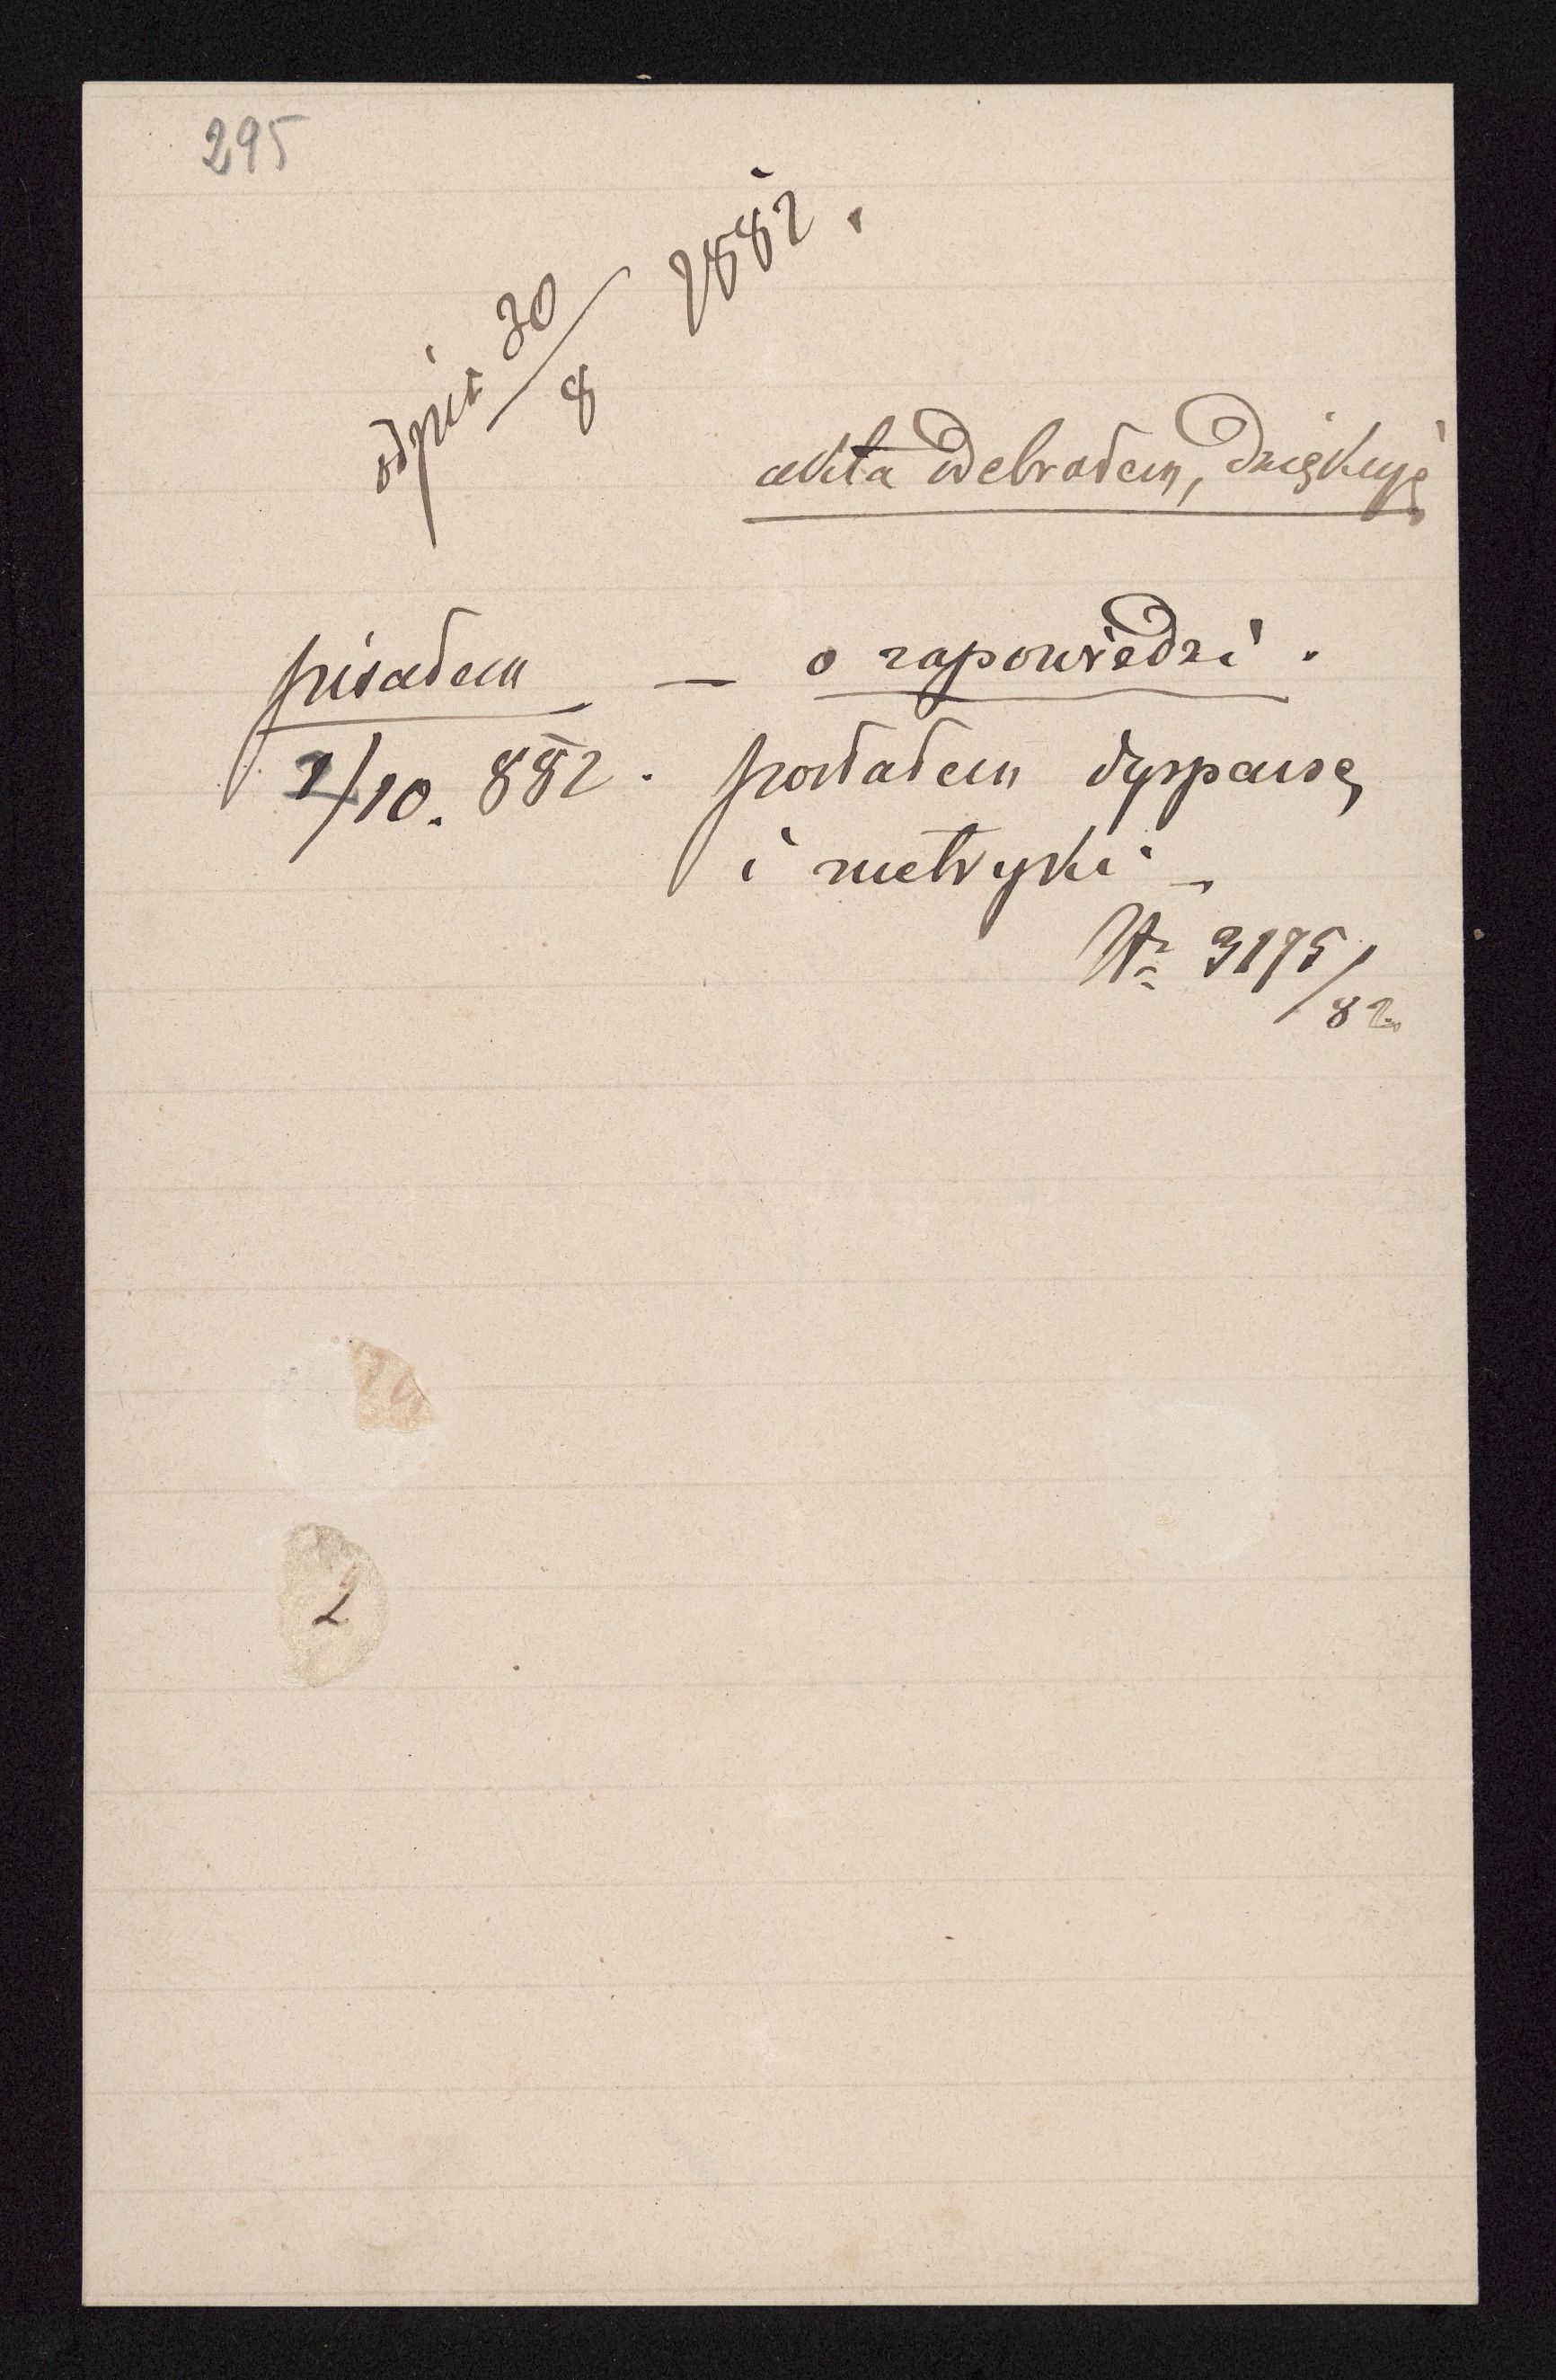 295
odpis 30/8 1882.
akta odebrałem, dziękuję
pisałem — o zapowiedzi.
1/10. 882. posłałem dyspensę
i metryki –
Nr 3195/82.
2